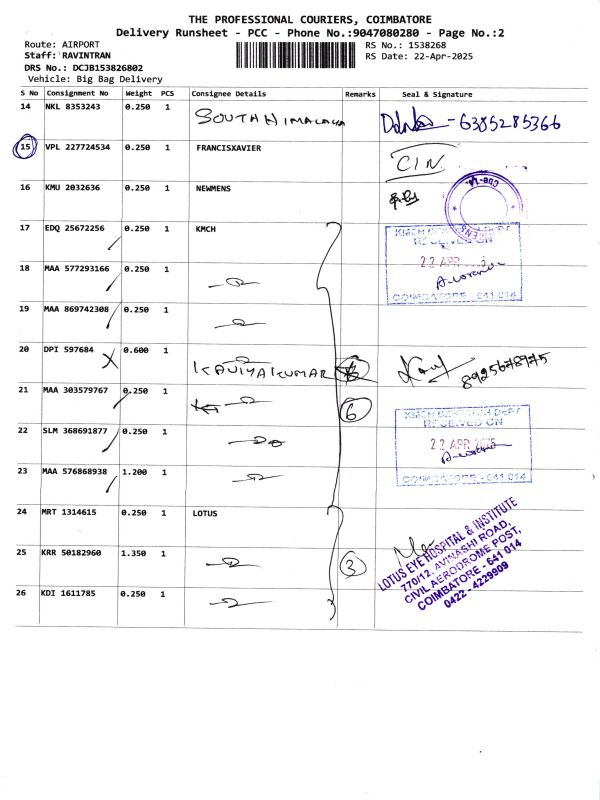 THE PROFESSIONAL COURIERS, COIMBATORE
Delivery Runsheet - PCC - Phone No.:9047080280 - Page No.:2
Route: AIRPORT
RS No.: 1538268
Staff: RAVINTRAN
RS Date: 22-Apr-2025
DRS No.: DCJB153826802
Vehicle: Big Bag Delivery
S No Consignment No Weight PCS Consignee Details Remarks Seal & Signature
14 NKL 8353243 0.250 1 SOUTH HIMALAYA 6385285366
15 VPL 227724534 0.250 1 FRANCISXAVIER CIN
16 KMU 2032636 0.250 1 NEWMENS
17 EDQ 25672256 0.250 1 KMCH
KMCH DESPATCH DEPT
RECEIVED ON
22 APR
COIMBATORE - 641 014
18 MAA 577293166 0.250 1
19 MAA 869742308 0.250 1
20 DPI 597684 0.600 1 KAVIYAKUMAR 8925678975
21 MAA 303579767 0.250 1 6
KMCH DESPATCH DEPT
RECEIVED ON
22 APR 2025
COIMBATORE - 641 014
22 SLM 368691877 0.250 1
23 MAA 576868938 1.200 1
24 MRT 1314615 0.250 1 LOTUS
25 KRR 50182960 1.350 1 3
LOTUS EYE HOSPITAL & INSTITUTE
770/12, AVINASHI ROAD,
CIVIL AERODROME POST,
COIMBATORE - 641 014
0422 - 4229909
26 KDI 1611785 0.250 1